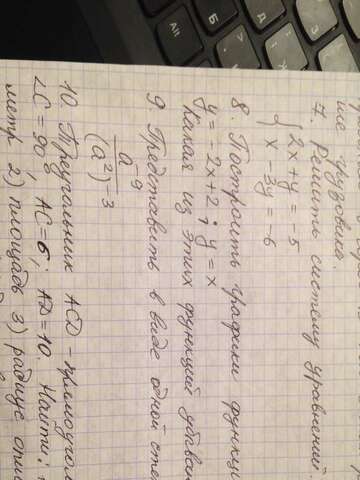 ше грузовике.
7. Решить систему уравнений.
{ 2x + y = -5
x - 3y = -6
8. Построить графики функци
y = -2x + 2 ; y = x
Какая из этих функций убыва
9 Представить в виде одной степ
a⁻⁹
(a²)⁻³
10. Треугольник ACD - прямоугол
∠C = 90°, AC = 6; AD = 10. Найти:
метр 2) площадь 3) радиус опис
Alt